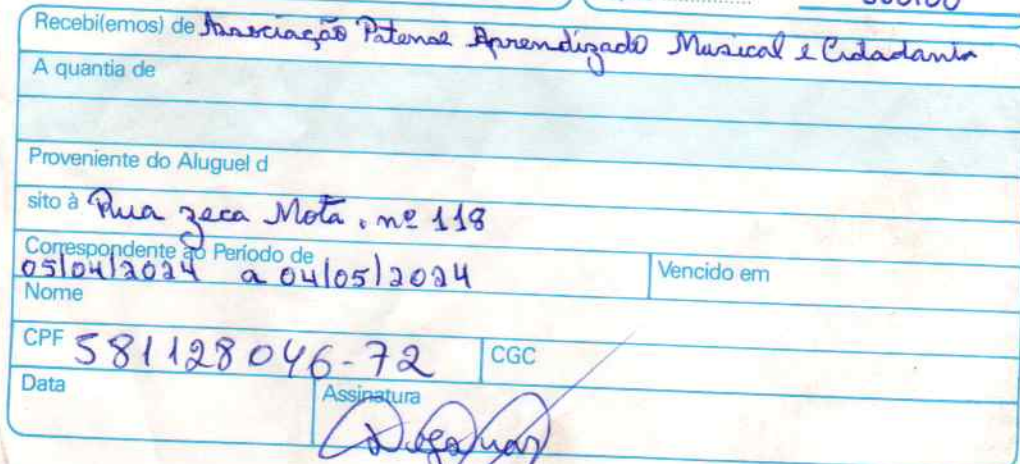 Recebi(emos) de Associação Patense Aprendizado Musical e Cidadania
A quantia de
Proveniente do Aluguel d
sito à Rua Zeca Mota, nº 118
Correspondente ao Período de
05/04/2024 a 04/05/2024 Vencido em
Nome
CPF 581128046-72 CGC
Data Assinatura